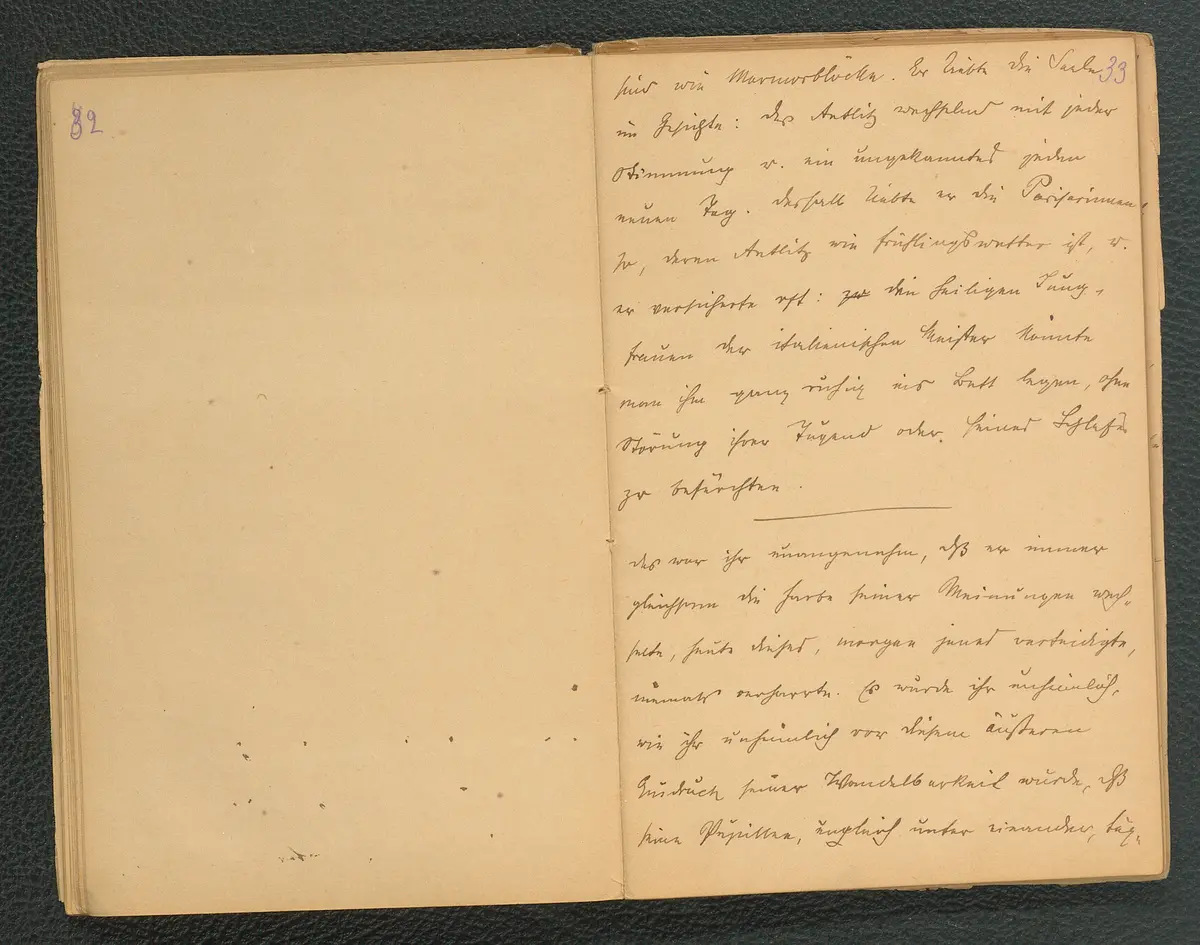 82
33
sind wie Marmorblöcke. Er liebte die Seele
im Gesichte: das Antlitz wechselnd mit jeder
Stimmung u. ein ungekanntes jeden
neuen Tag. Desshalb liebte er die Pariserinnen
so, deren Antlitz wie Frühlingswetter ist, u.
er versicherte oft: zu die heiligen Jung-
frauen der italienischen Meister könnte
man ihm ganz ruhig ins Bett legen, ohne
Störung ihrer Tugend oder seines Schlafes
zu befürchten.
Das war ihr unangenehm, dß er immer
gleichsam die Farbe seiner Meinungen wech-
selte, heute dieses, morgen jenes verteidigte,
niemals verharrte. Es wurde ihr unheimlich,
wie ihr unheimlich vor diesem äußeren
Ausdruck seiner Wandelbarkeit wurde, dß
seine Pupillen, ungleich unter einander, täg-